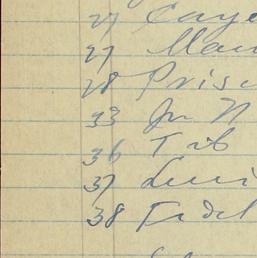 27 Caye
27 Mau
28 Prisc
33 Jn N
36 Tib
37 Luci
38 Fidel